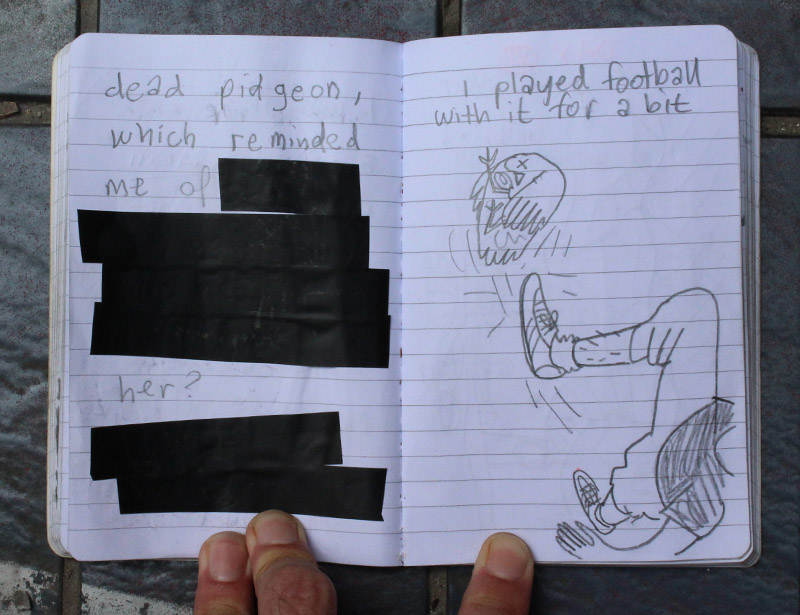 dead pidgeon,
which reminded
me of
her?
I played football
with it for a bit